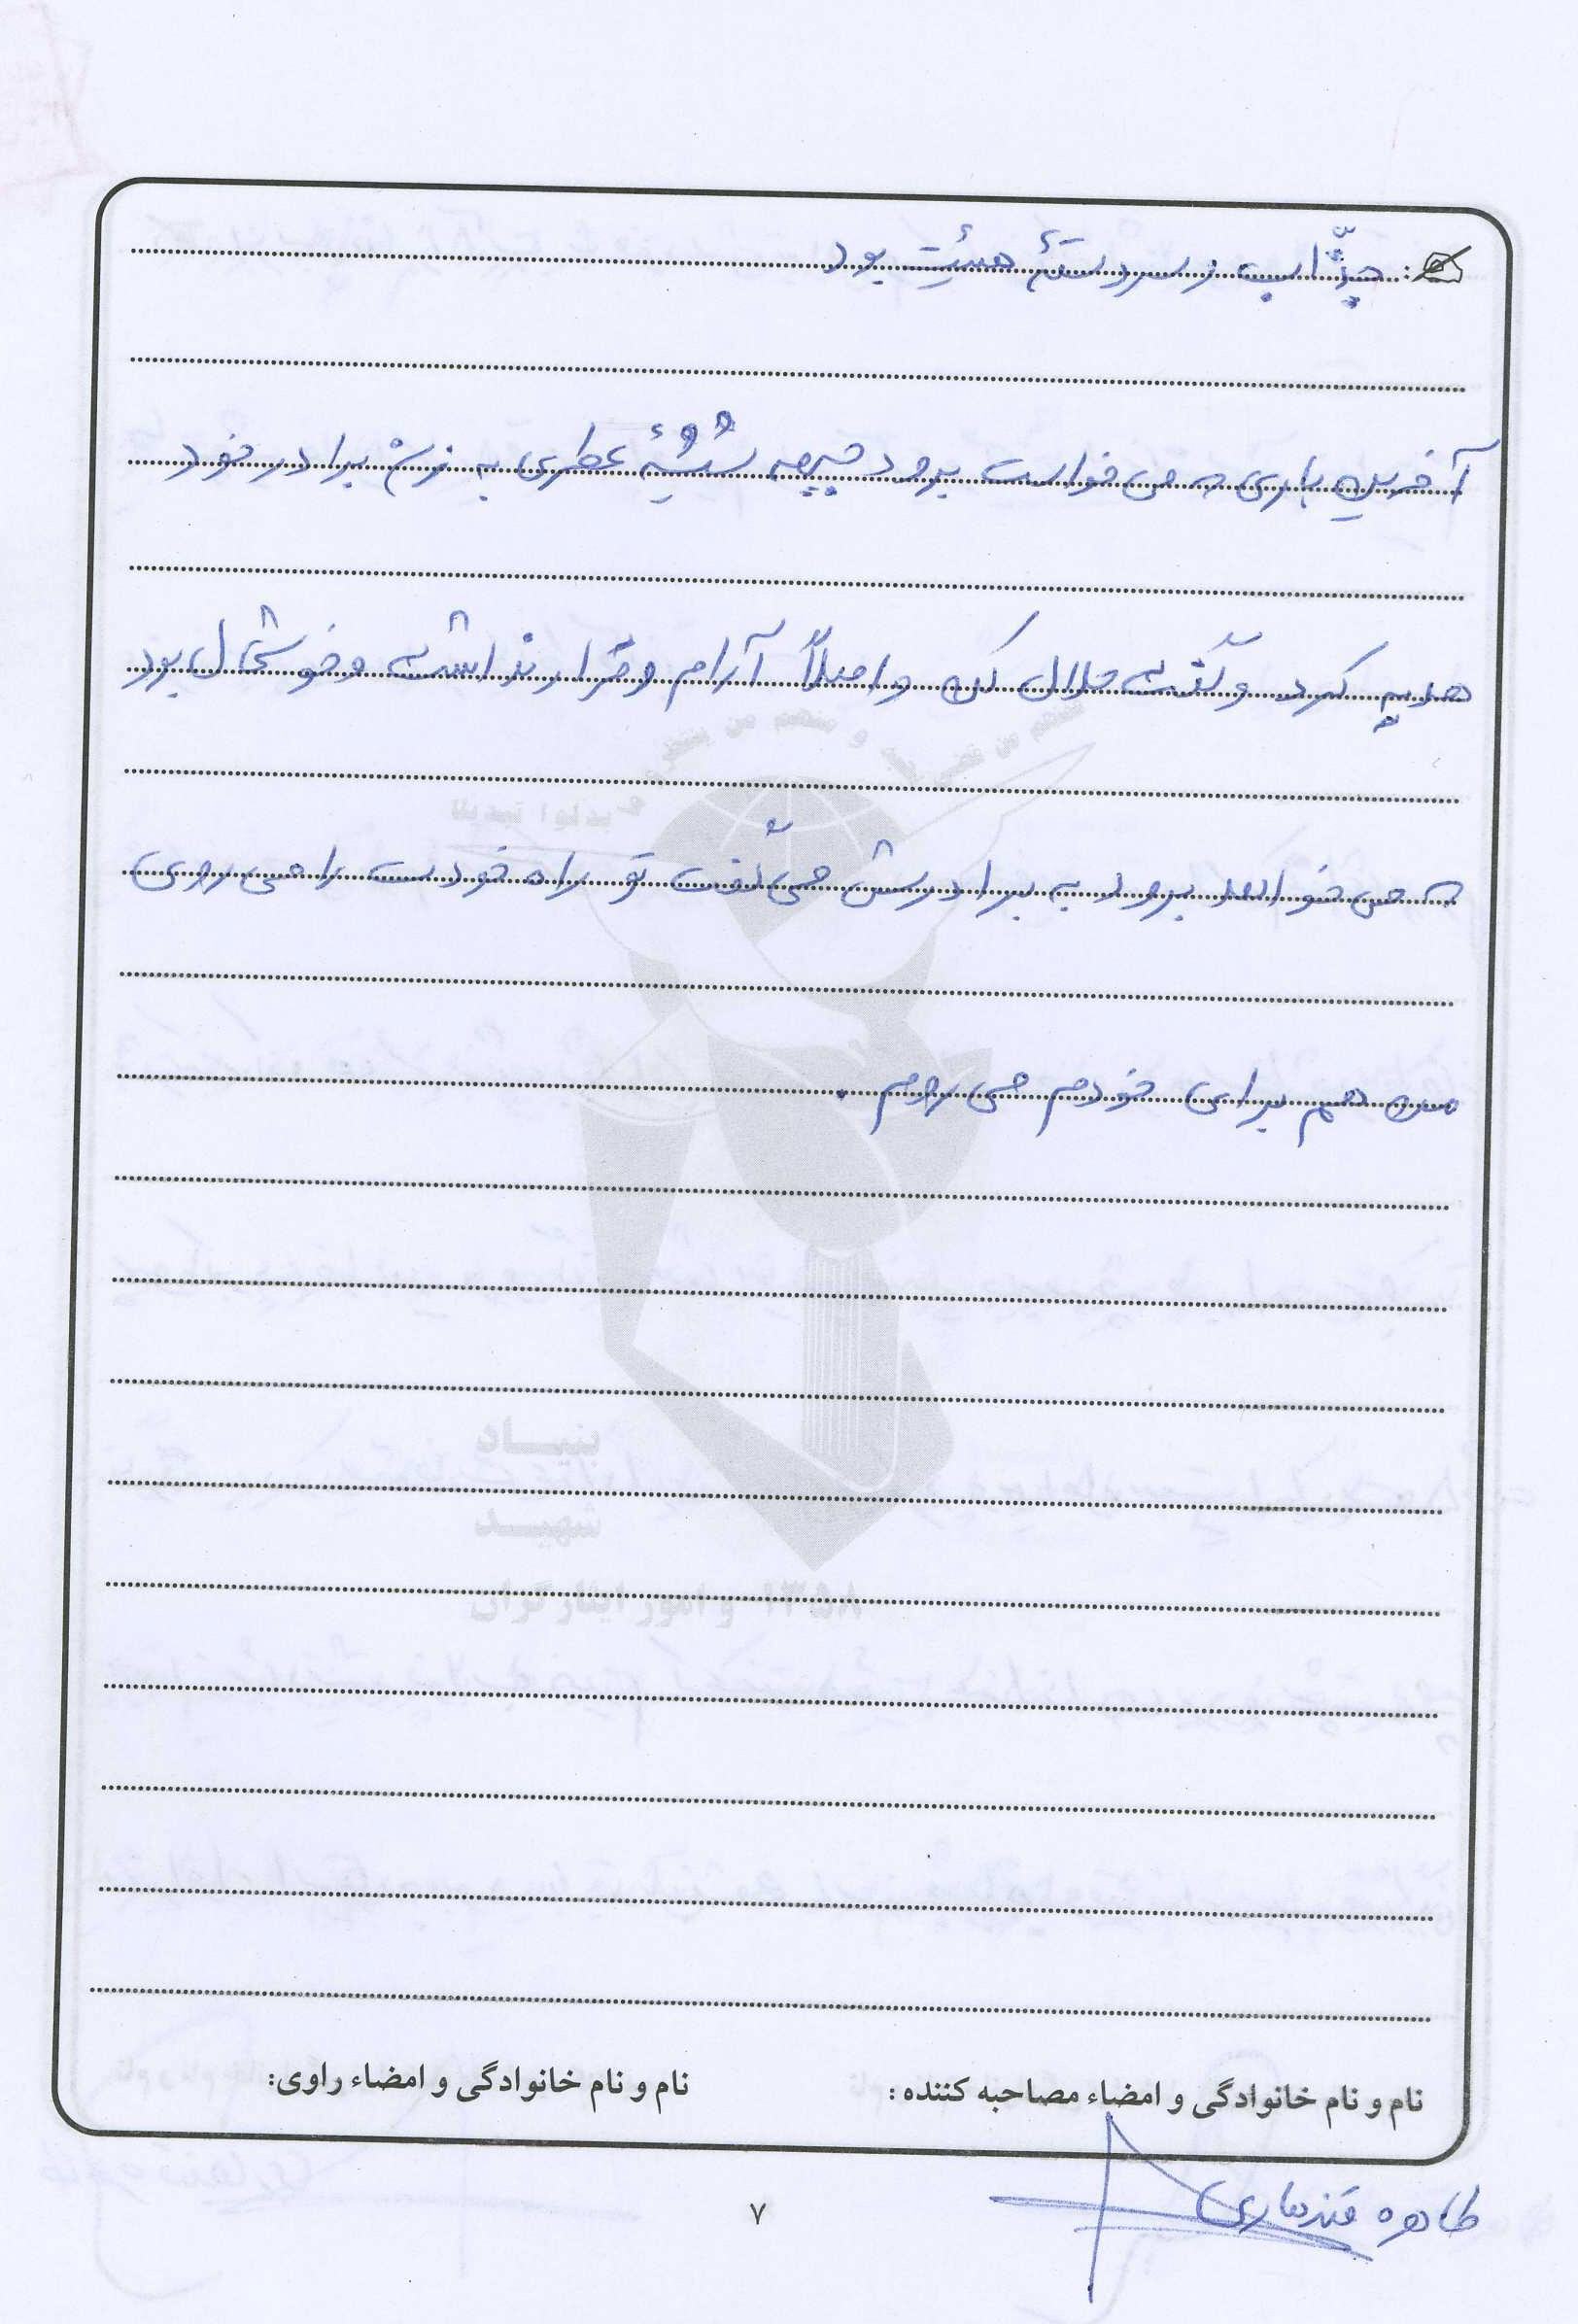 جذّاب و سردستهٔ هیئت بود
آخرین باری که می خواست برود جبهه شیشهٔ عطری به زن برادر خود
هدیه کرد و گفت حلال کن و اصلاً آرام و قرار نداشت و خوشحال بود
که می خواهد برود به برادرش می گفت تو راه خودت را می روی
من هم برای خودم می روم .
بنیاد
شهید
و امور ایثارگران ۱۳۵۸
نام و نام خانوادگی و امضاء مصاحبه کننده :
نام و نام خانوادگی و امضاء راوی:
طاهره قندهاری
۷